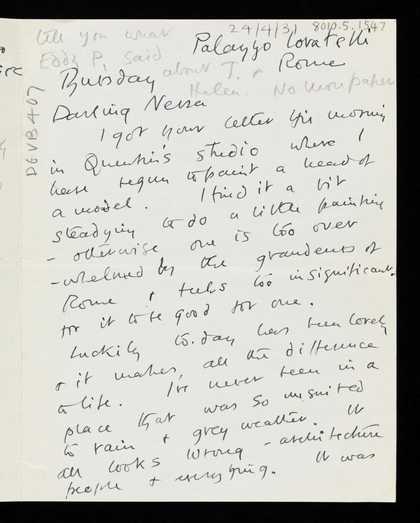 tell you what
Eddy P. said
about T. +
Helen. No more paper
24/4/31
8010.5.1547
DGVB407
Palazzo Lovatelli
Rome
Thursday
Darling Nessa
I got your letter this morning
in Quentin's studio where I
have begun to paint a head of
a model. I find it a bit
steadying to do a little painting
- otherwise one is too over
-whelmed by the grandeurs of
Rome & feels too insignificant
for it to be good for one.
Luckily to-day has been lovely
& it makes all the difference
to life. I've never been in a
place that was so unsuited
to rain & grey weather. It
all looks wrong - architecture
people & everything. It was